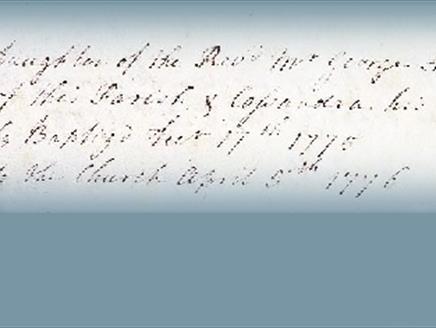 daughter of the Revd Mr George A
of this Parish & Cassandra his
ly Baptiz'd Decr 17th 1775
to the Church April 5th 1776